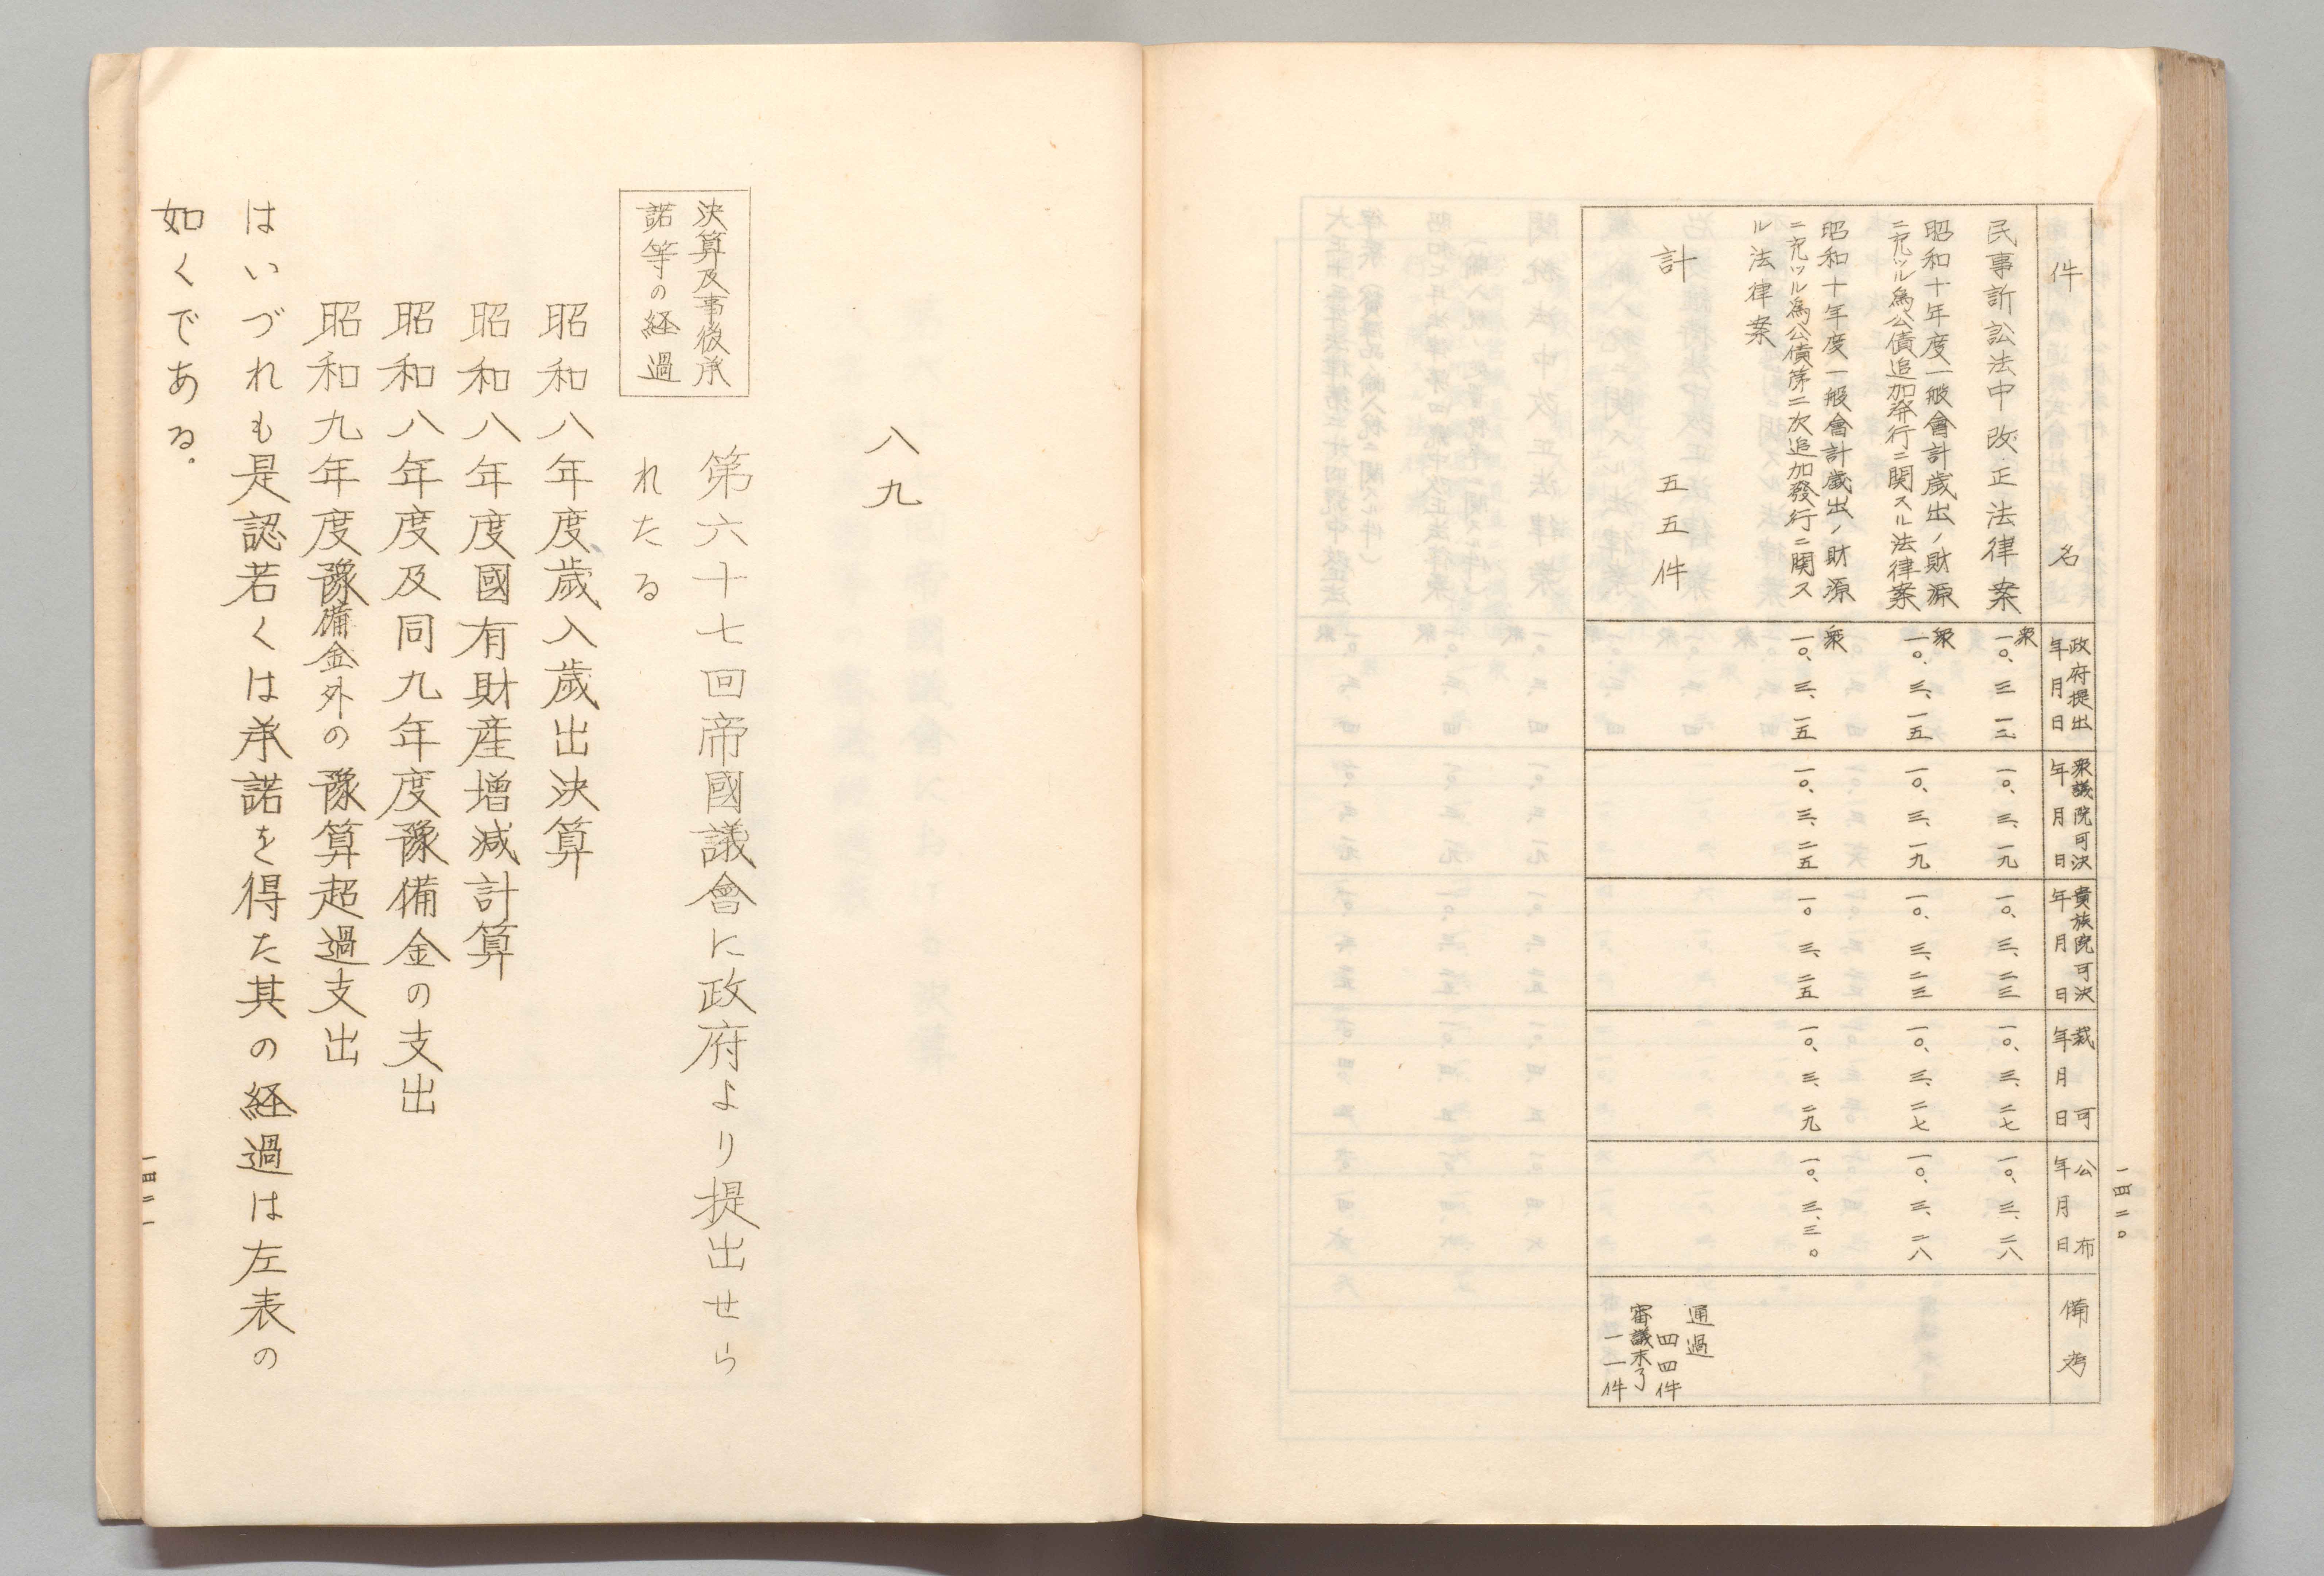 一四二〇
件名
政府提出
年月日
衆議院可決
年月日
貴族院可決
年月日
裁可
年月日
公布
年月日
備考
民事訴訟法中改正法律案
衆
一〇、三、一二
一〇、三、一九
一〇、三、二三
一〇、三、二七
一〇、三、二八
昭和十年度一般會計歳出ノ財源
ニ充ツル爲公債追加発行ニ関スル法律案
衆
一〇、三、一五
一〇、三、一九
一〇、三、二三
一〇、三、二七
一〇、三、二八
昭和十年度一般會計歳出ノ財源
ニ充ツル爲公債第二次追加發行ニ関ス
ル法律案
衆
一〇、三、一五
一〇、三、二五
一〇、三、二五
一〇、三、二九
一〇、三、三〇
計 五五件
通過
四四件
審議未了
一一件
八九
決算及事後承
諾等の経過
第六十七回帝國議會に政府より提出せら
れたる
昭和八年度歳入歳出決算
昭和八年度國有財産増減計算
昭和八年度及同九年度豫備金の支出
昭和九年度豫備金外の豫算超過支出
はいづれも是認若くは承諾を得た其の経過は左表の
如くである。
一四二一